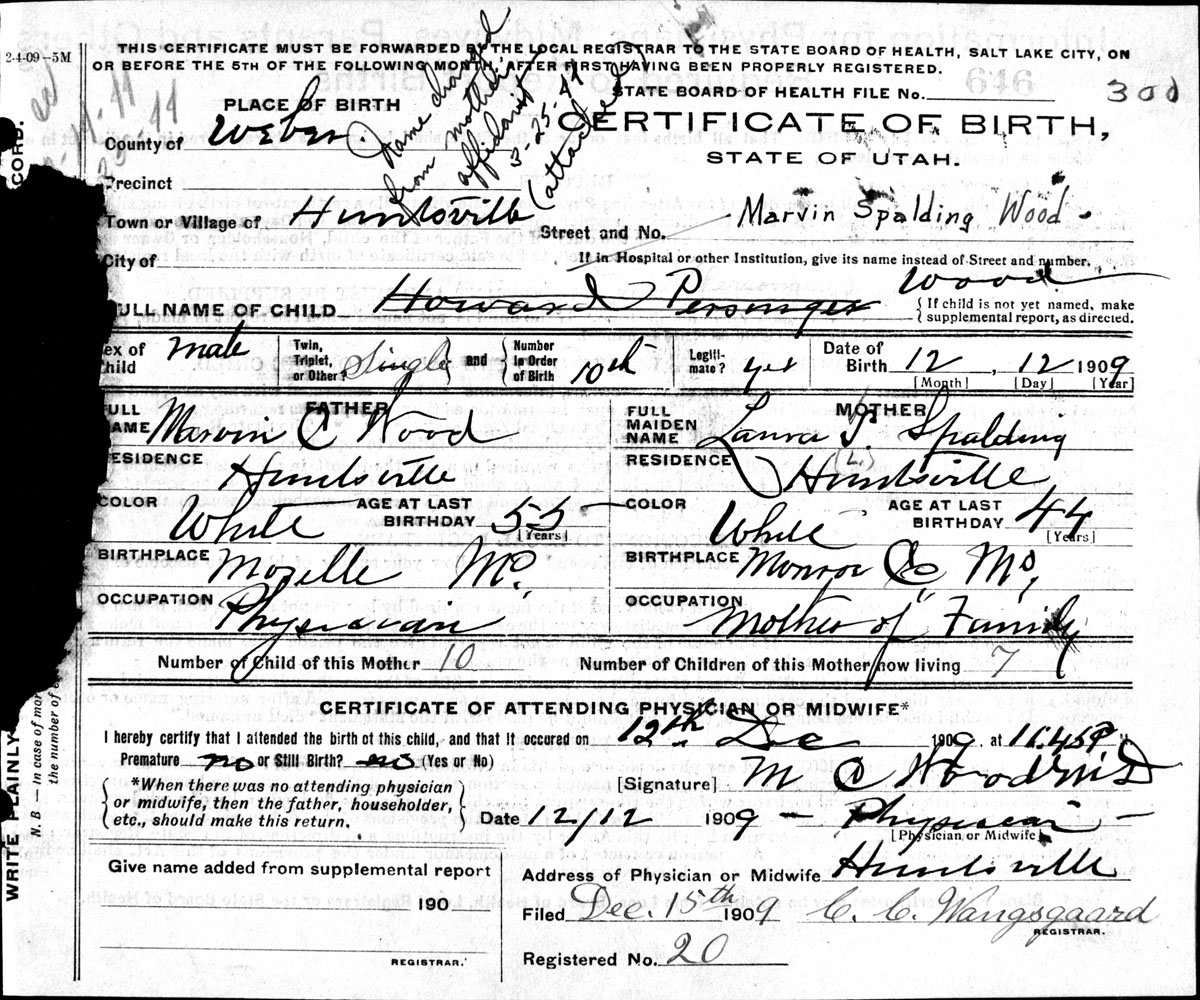 THIS CERTIFICATE MUST BE FORWARDED BY THE LOCAL REGISTRAR TO THE STATE BOARD OF HEALTH, SALT LAKE CITY, ON
2-4-09—5M
OR BEFORE THE 5TH OF THE FOLLOWING MONTH, AFTER FIRST HAVING BEEN PROPERLY REGISTERED.
STATE BOARD OF HEALTH FILE No. 300
Name changed
from mother's
affidavit
3-25-47
(attached)
PLACE OF BIRTH
CERTIFICATE OF BIRTH,
County of Weber
STATE OF UTAH.
Precinct
Town or Village of Huntsville
Street and No. Marvin Spalding Wood
City of
If in Hospital or other Institution, give its name instead of Street and number.
FULL NAME OF CHILD Howard Persinger Wood
{If child is not yet named, make
supplemental report, as directed.
ex of
hild male
Twin,
Triplet,
or Other? Single and Number
in Order
of Birth 10th
Legiti-
mate? yes
Date of
Birth 12, 12 1909
[Month] [Day] [Year]
FATHER
FULL
NAME Marvin C Wood
RESIDENCE Huntsville
COLOR White
AGE AT LAST
BIRTHDAY 55
[Years]
BIRTHPLACE Mozelle Mo.
OCCUPATION Physician
MOTHER
FULL
MAIDEN
NAME Laura S. Spalding
(L.)
RESIDENCE Huntsville
COLOR White
AGE AT LAST
BIRTHDAY 44
[Years]
BIRTHPLACE Monroe Co Mo,
OCCUPATION Mother of Family
Number of Child of this Mother 10 Number of Children of this Mother now living 7
CERTIFICATE OF ATTENDING PHYSICIAN OR MIDWIFE*
I hereby certify that I attended the birth of this child, and that it occured on 12th Dec 1909, at 11.45 P. M
Premature no or Still Birth? no (Yes or No)
[Signature] M C Wood M D
*When there was no attending physician
or midwife, then the father, householder,
etc., should make this return.
Date 12/12 1909 — Physician —
[Physician or Midwife]
Give name added from supplemental report
190
REGISTRAR.
Address of Physician or Midwife Huntsville
Filed Dec. 15th 1909 C. C. Wangsgaard
REGISTRAR.
Registered No. 20
CORD.
WRITE PLAINLY
N. B.—In case of mor
the number of